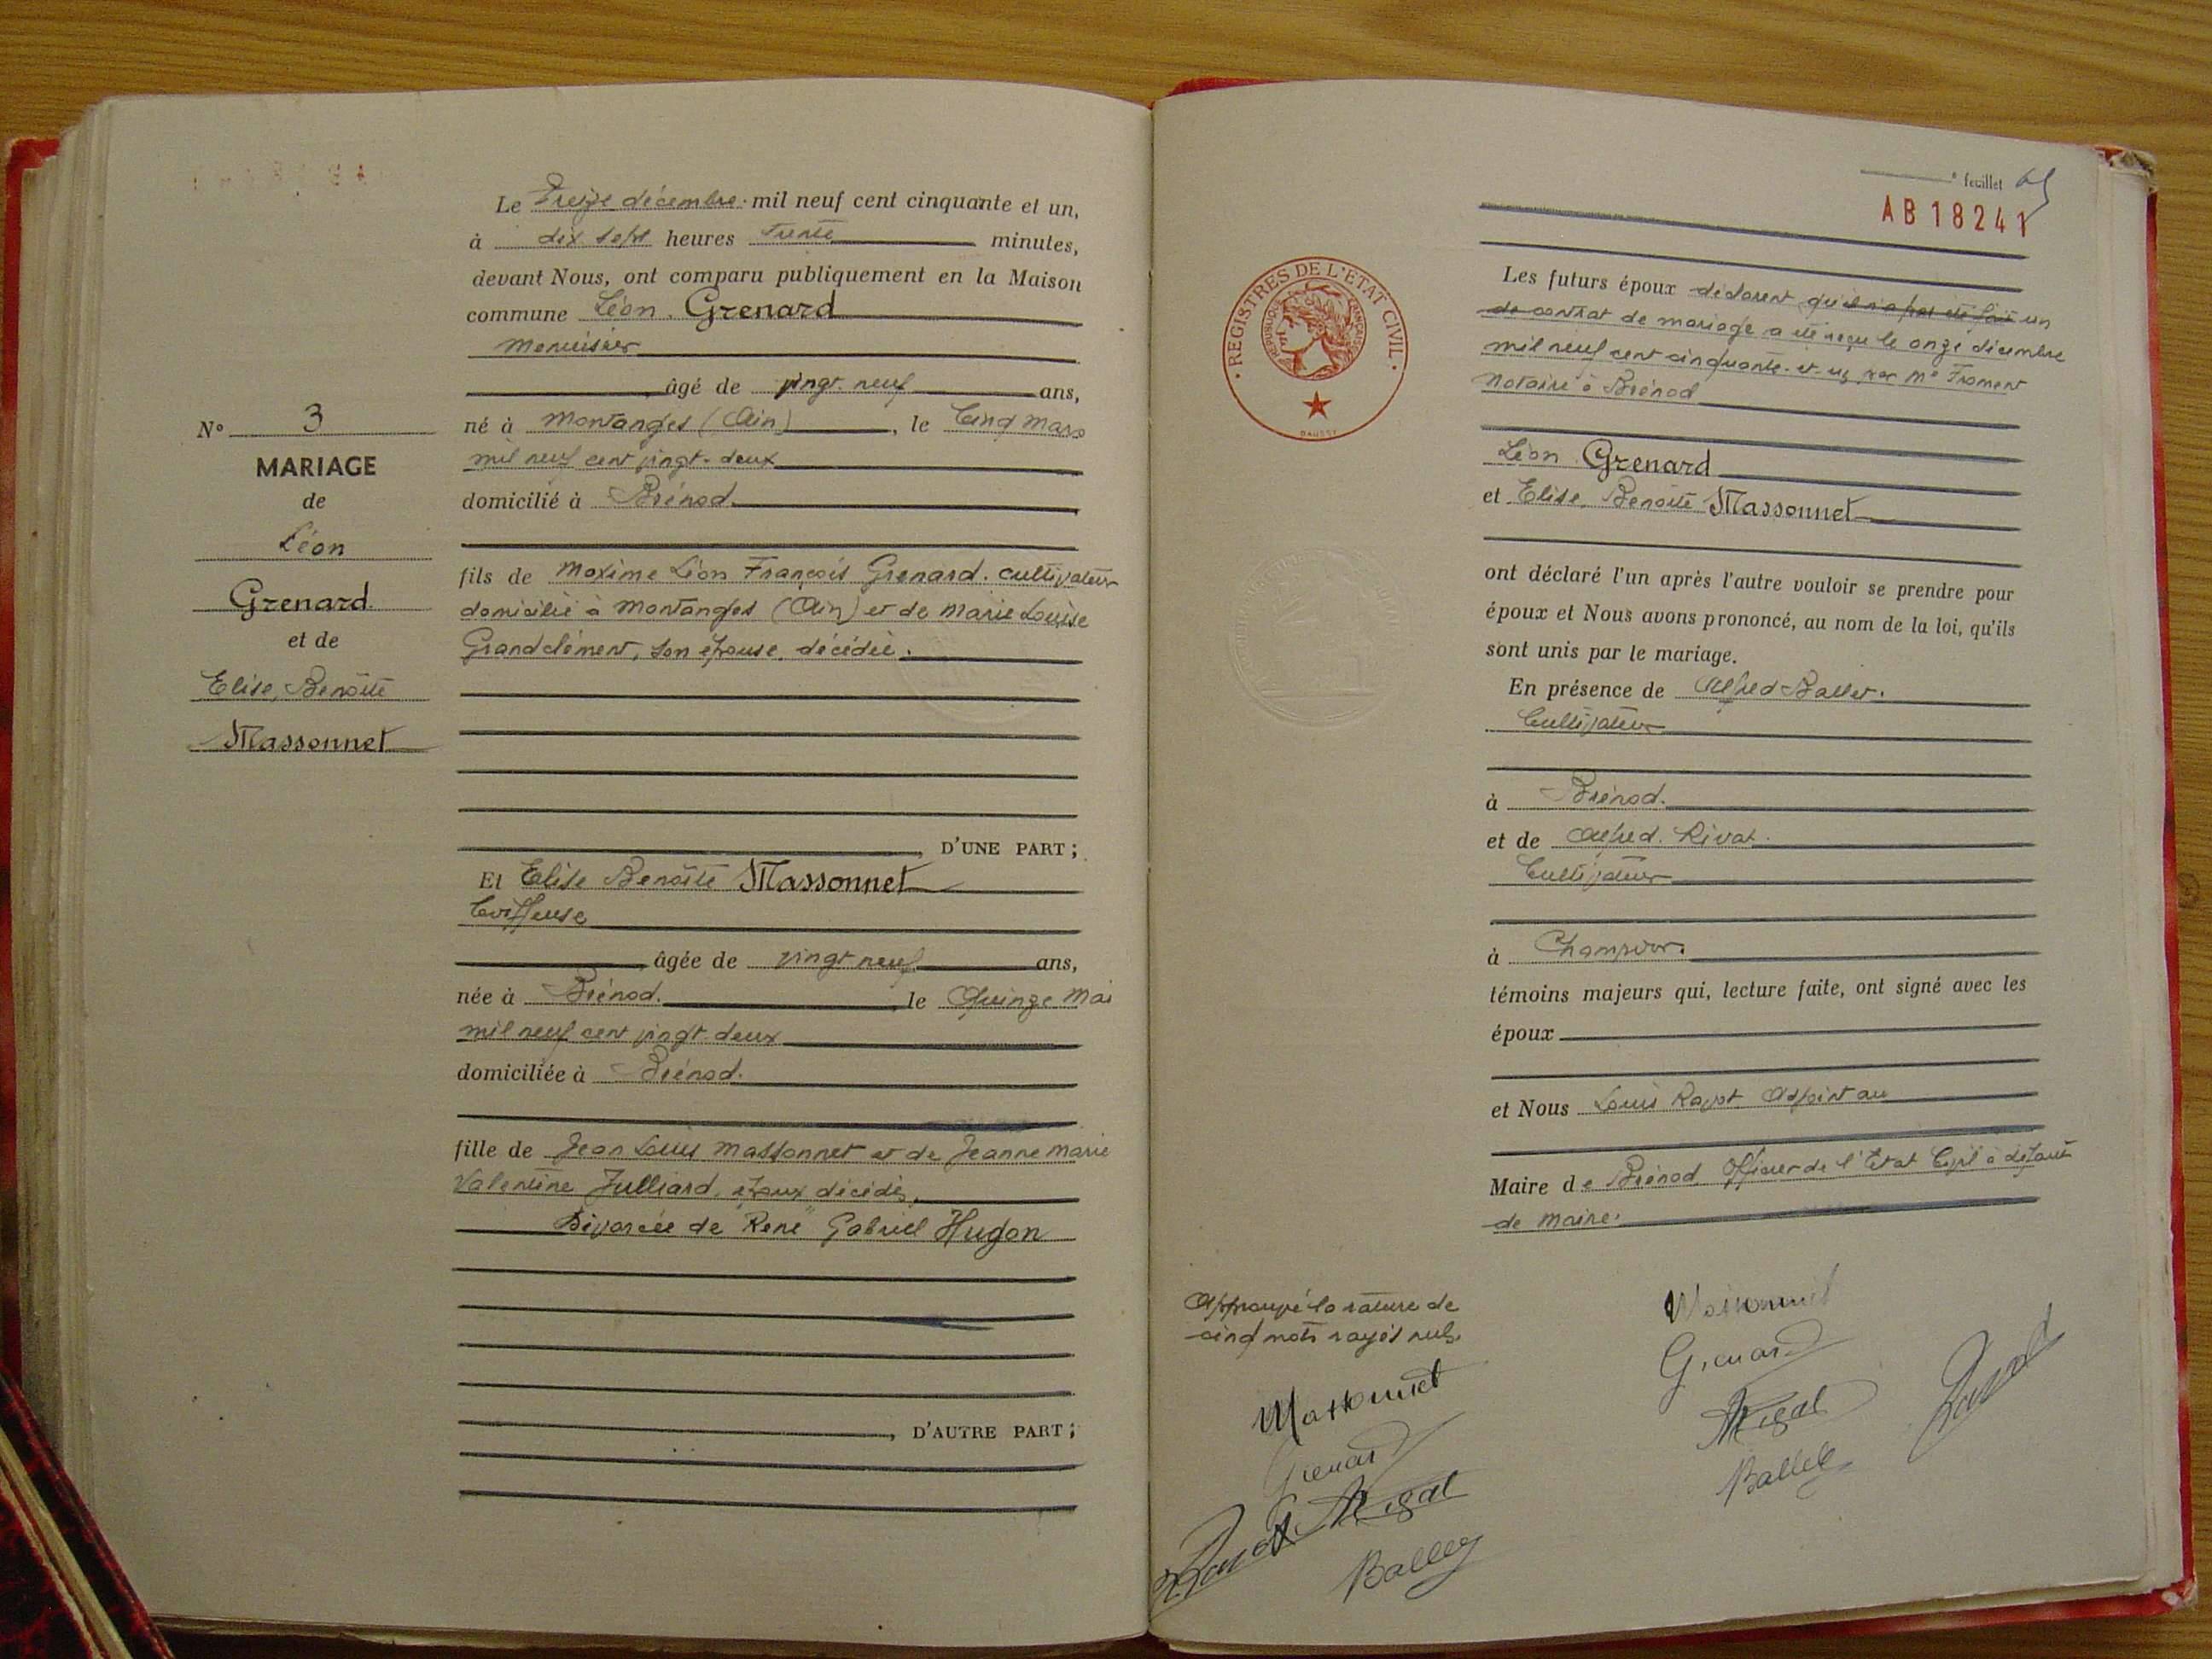 Le Treize décembre mil neuf cent cinquante et un,
à dix sept heures trente minutes,
devant Nous, ont comparu publiquement en la Maison
commune Léon Grenard
menuisier
âgé de vingt-neuf ans,
né à Montanges (Ain), le Cinq mars
mil neuf cent vingt-deux
domicilié à Brénod.
fils de Maxime Léon François Grenard. cultivateur
domicilié à Montanges (Ain) et de Marie Louise
Grandclément, son épouse décédée.
D'UNE PART ;
Et Elise Benoîte Massonnet
Coiffeuse
âgée de vingt neuf ans,
née à Brénod. le Quinze Mai
mil neuf cent vingt-deux
domiciliée à Brénod.
fille de Jean Louis Massonnet et de Jeanne Marie
Valentine Julliard, époux décédés.
Divorcée de René Gabriel Hugon
D'AUTRE PART ;
N° 3
MARIAGE
de
Léon
Grenard
et de
Elise, Benoîte
Massonnet
feuillet
AB 18241
REGISTRES DE L'ETAT CIVIL
REPUBLIQUE FRANÇAISE
DAUSSY
Les futurs époux déclarent qu'il n'a pas été fait un
de contrat de mariage a été reçu le onze décembre
mil neuf cent cinquante-et-un par Me Froment
Notaire à Brénod
Léon Grenard
et Elise, Benoîte Massonnet
ont déclaré l'un après l'autre vouloir se prendre pour
époux et Nous avons prononcé, au nom de la loi, qu'ils
sont unis par le mariage.
En présence de Alfred Ballet.
Cultivateur
à Brénod.
et de Alfred.
Cultivateur
à Champdor.
témoins majeurs qui, lecture faite, ont signé avec les
époux
et Nous Louis Adjoint au
Maire de Brénod Officier de l'Etat Civil à défaut
de maire.
Approuvé la rature de
cinq mots rayés nuls.
Massonnet
Grenard
Ballet
Massonnet
Grenard
Ballet